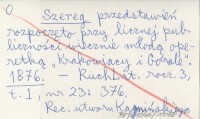 O
Szereg przedstawień
rozpoczęto przy licznej pub-
liczności wiecznie młodą ope-
retką „Krakowiacy i Górale".
1876. – Ruch Lit. rocz. 3,
t. 1, nr. 23: 376.
Rec. utworu Kamińskiego